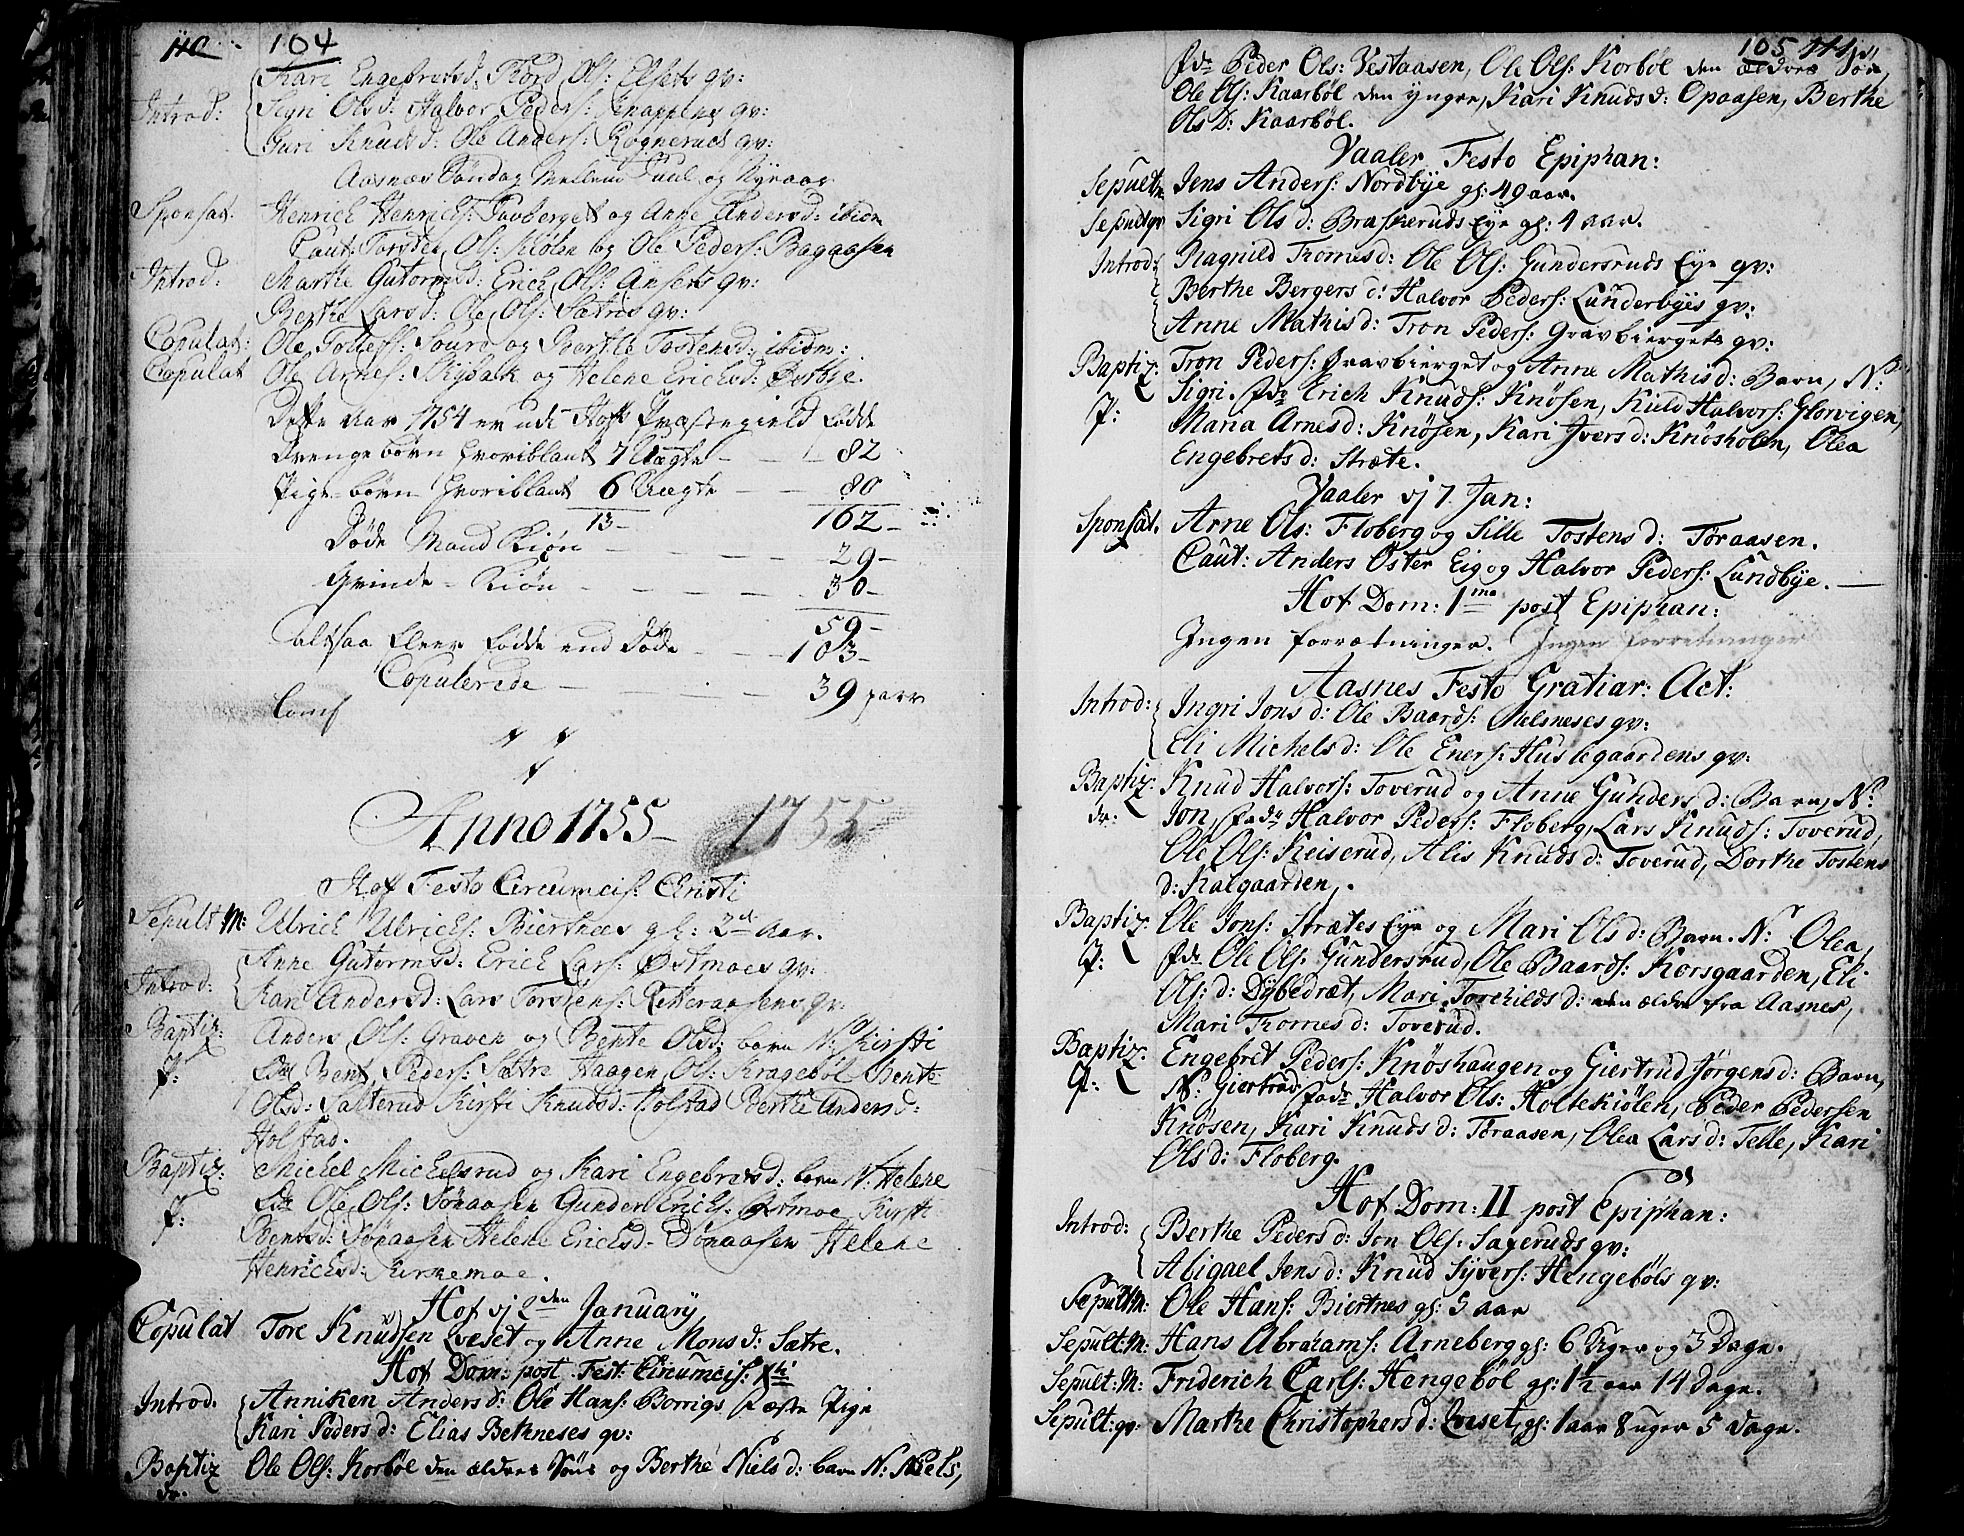 110 104
Kari Engebretsd: Thord Ols: Elsets qv:
Introd: Sigri Olsd: Halvor Peders: Knappens qv:
Guri Knudsd: Ole Anders: Rognerues qv:
Aasnæs Søndag Mellem Juul og Nyeaar
Sponsat. Henrich Henrichs: Tavberget og Anne Andersd: ibidm
Caut: Torsten Ols: Kiølen og Ole Peders: Bagaasen
Introd: Marthe Gutormsd: Erich Ols: Ansets qv:
Berthe Larsd: Ole Ols: Sætris qv:
Copulat: Ole Tolless: Sourd og Berthe Tostensd: ibidm:
Copulat Ole Arnes: Skybalk og Helene Erichsd: Berbye.
Dette Aar 1754 er ude Hofs Præstegield fødde
Drengebørn hvoriblant 7 Uægte - - 82
Pige-børn hvoriblant 6 Uægte - - 80
13- 162-
Døde Mand Kiøn - - - - 29-
Qvinde-Kiøn - - - - 30-
59-
altsaa fleere fødde end døde - - 103-
Copulerede - - - - 39 parr
Anno 1755- 1755
Hof Festo Circumcis: Christi
Sepult M: Ulrich Ulrichs: Biertnes gl: 2 Aar.
Anne Gutormsd: Erich Lars: Østmoes qv:
Introd: Kari Andersd: Lars Torstens: Retteraasens qv:
Baptiz: Anders Ols: Graven og Bente Olsd: barn N: Kirsti
P: Bent Peders: Sætre Haagen Ols: Kragebøl Bente
Olsd: Salterud Kirsti Knudsd: Holstad Berthe Andersd:
Holstad.
Baptiz: Michel Michelsrud og Kari Engebretsd: barn N: Helene
P: Ole Ols: Sønaasen Gunder Erichs: Østmoe Kirsti
Bentsd: Sønaasen Helene Erichsd: Dønaasen Helene
Henrichsd: Kirkemoe.
Hof vj 2den January
Copulat Tore Knudsen Qveset og Anne Monsd: Sætre.
Hof Dom: post Fest: Circumcis: Xti
Introd. Anniken Andersd: Ole Hans: Borrigs Fæste Pige
Kari Pedersd: Elias Bethneses qv:
Baptiz Ole Ols: Korbøl den ældres Søns og Berthe Nielsd: barn N: Niels,
dr.
105 111
fdr Peder Ols: Vestaasen, Ole Ols: Korbøl den ældres Søn,
Ole Ols: Kaarbøl den yngre, Kari Knudsd: Opaasen, Berthe
Olsd: Kaarbøl.
Vaaler Festo Epiphan:
Sepult m Jens Anders: Nordbye gl: 49 aar.
Sepult qv Sigri Olsd: Braskeruds Eye gl: 4 aar.
Introd: Ragnild Thomesd: Ole Ols: Gundersruds Eye qv:
Berthe Bergersd: Halvor Peders: Lunderbyes qv:
Anne Mathisd: Tron Peders: Gravbiergets qv:
Baptiz: Tron Peders: Gravbierget og Anne Mathisd: Barn, N:
P: Sigri. fdr Erich Knuds: Knøsen, Kield Halvors: Glorvigen,
Maria Arnesd: Knøsen, Kari Iversd: Knøsholen, Olea
Engebretsd: Stræte.
Vaaler vj 7 Jan:
Sponsat. Arne Ols: Floberg og Sille Tostensd: Tøraasen.
Caut: Anders Øster Eig og Halvor Peders: Lundbye.
Hof Dom: 1ma post Epiphan:
Ingen forrætninger. Ingen forretninger
Aasnes Festo Gratiar: Act:
Introd: Ingri Jonsd: Ole Baards: Melsneses qv:
Eli Michelsd: Ole Eners: Huslegaardens qv:
Baptiz. Knud Halvors: Toverud og Anne Gundersd: Barn, N:
dr. Jon, fadr Halvor Peders: Floberg, Lars Knuds: Toverud,
Ole Ols: Keiserud, Alis Knudsd: Toverud, Dorthe Tostens
d: Kalgaarden.
Baptiz. Ole Jons: Strætes Eye og Mari Olsd: Barn. N: Olea,
P: fdr Ole Ols: Gundersrud, Ole Baards: Korsgaarden, Eli
Olsd: Dybedræt, Mari Torchildsd: den ældre fra Aasnes,
Mari Thomesd: Toverud.
Baptiz. Engebret Peders: Knøshaugen og Giertrud Jørgensd: Barn,
P: N: Giertrud, fadr Halvor Ols: Holtekiølen, Peder Pedersen
Knøsen, Kari Knudsd: Tøraasen, Olea Larsd: Telle, Kari
Olsd: Floberg.
Hof Dom: II post Epiphan:
Introd: Berthe Pedersd: Jon Ols: Sageruds qv:
Abigael Jensd: Knud Syvers: Hengebøls qv:
Sepult M: Ole Hans: Biertnes gl: 5 aar
Sepult: M: Hans Abrahams: Arneberg gl: 6 Uger og 3 Dage.
Sepult: M: Friderich Carls: Hengebøl gl: 1½ aar 14 Dage.
Sepult: qv: Marthe Christophersd: Qveset, gl: 1 aar 8 uger 5 Dage.